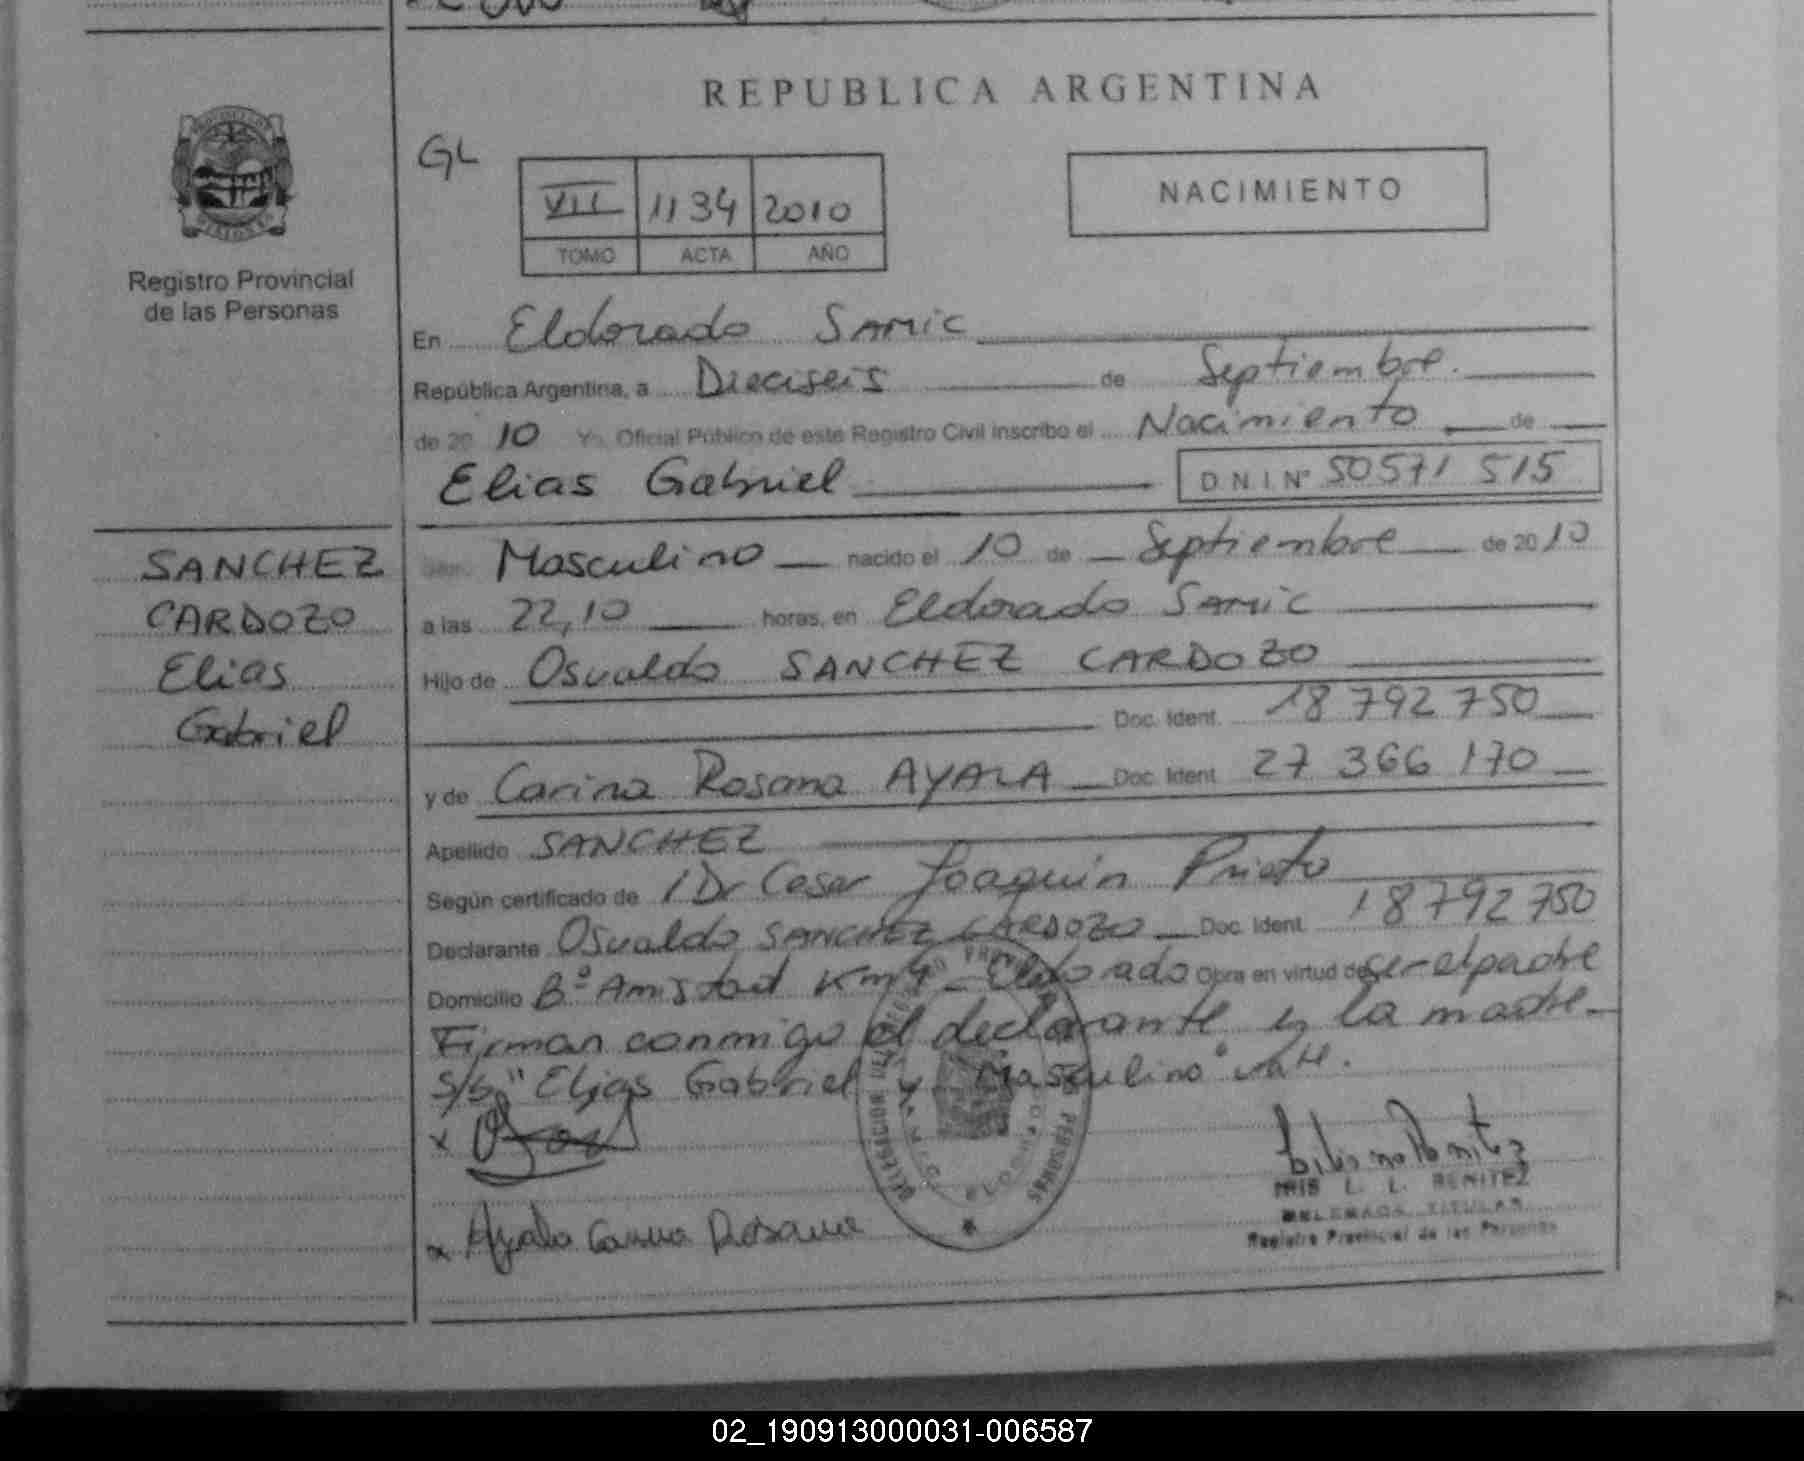 REPUBLICA ARGENTINA
GL
VII 1134 2010
TOMO ACTA AÑO
NACIMIENTO
Registro Provincial
de las Personas
En Eldorado SAMIC
República Argentina, a Dieciseis de Septiembre.
de 20 10 Yo, Oficial Público de este Registro Civil inscribo el Nacimiento de
Elias Gabriel D N I Nº 50571 515
SANCHEZ
CARDOZO
Elias
Gabriel
Masculino nacido el 10 de Septiembre de 20 10
a las 22,10 horas, en Eldorado SAMIC
Hijo de Osvaldo SANCHEZ CARDOZO
Doc. Ident. 18 792 750
y de Carina Rosana AYALA Doc. Ident. 27 366 170
Apellido SANCHEZ
Según certificado de Dr Cesar Joaquin Prieto
Declarante Osvaldo SANCHEZ CARDOZO Doc. Ident. 18792750
Domicilio Bº Amistad Km Eldorado Obra en virtud de ser el padre
Firman conmigo el declarante y la madre
s/b "Elias Gabriel y Masculino" vale.
x
x Ayala Carina Rosana
IRIS L. L. BENITEZ
DELEGADA TITULAR
Registro Provincial de las Personas
02_190913000031-006587